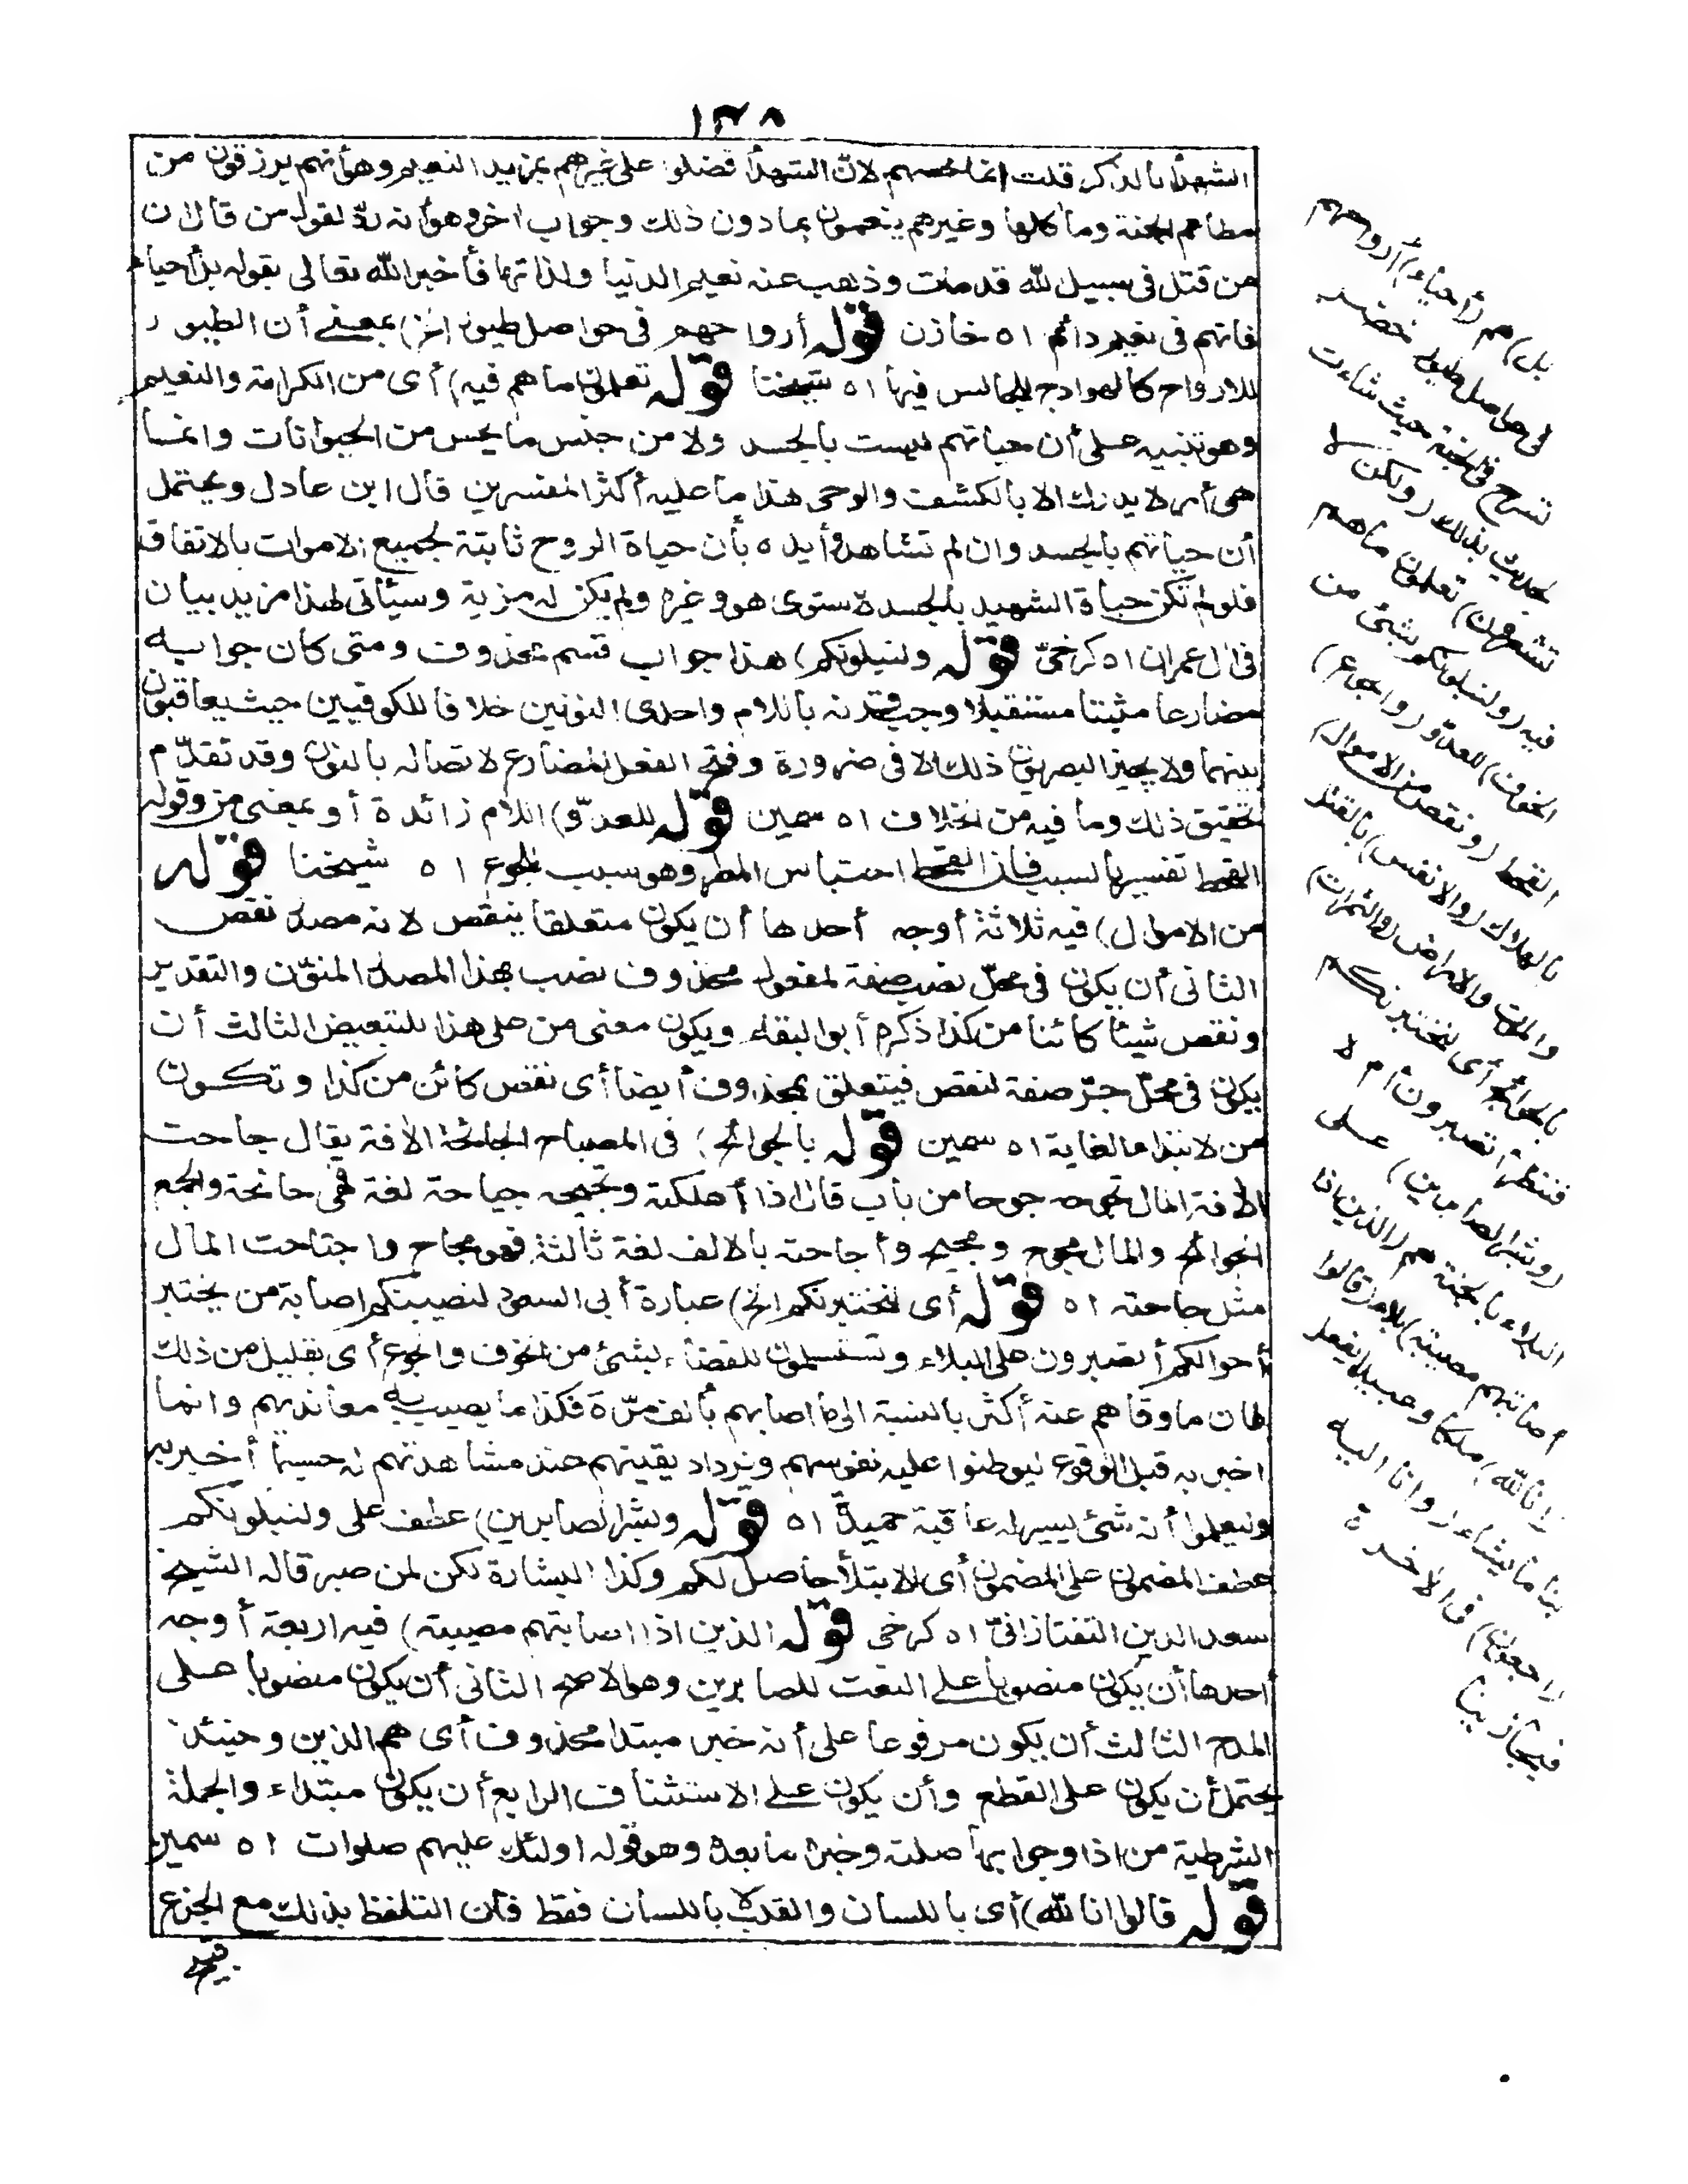 ١٣٨
الشهدأ بالذكر قلت انما خصهم لانّ الشهدأ فضلوا على غيرهم بمزيد النعيم وهو أنهم يرزقون من
مطاعم الجنة ومأكلها وغيرهم ينعمون بما دون ذلك وجواب اخر وهو أنه ردّ لقول من قال ان
من قتل فى سبيل لله قد مات وذهب عنه نعيم الدنيا ولذاتها فأخبر الله تعالى بقوله بل أحياء
فانهم فى نعيم دائم اه خازن قوله أرواحهم فى حواصل طيور الخ) بمعنى أن الطيور
للارواح كالهوادج للجالس فيها اه شيخنا قوله تعلمون ما هم فيه) أى من الكرامة والنعيم
وهو تنبيه على أن حياتهم ليست بالجسد ولا من جنس ما يحس من الحيوانات وانما
هى أمر لا يدرك الا بالكشف والوحى هذا ما عليه أكثر المفسرين قال ابن عادل ويحتمل
أن حياتهم بالجسد وان لم تشاهد وأيده بأن حياة الروح ثابتة لجميع الاموات بالاتفاق
فلو لم تكن حياة الشهيد بالجسد لاستوى هو وغيره ولم يكن له مزية وسيأتى لهذا مزيد بيان
فى ال عمران اه كرخىّ قوله ولنبلونكم) هذا جواب قسم محذوف ومتى كان جوابه
مضارعا مثبتا مستقبلا وجب قرنه باللام واحدى النونين خلافا للكوفيين حيث يعاقبون
بينهما ولا يجيز البصريون ذلك الا فى ضرورة وفتح الفعل المضارع لاتصاله بالنون وقد تقدّم
تحقيق ذلك وما فيه من الخلاف اه سمين قوله للعدوّ) اللام زائدة أو بمعنى من وقوله
القحط تفسير بالسبب فان القحط احتباس المطر وهو سبب للجوع اه شيخنا قوله
من الاموال) فيه ثلاثة أوجه أحدها أن يكون متعلقا بنقص لانه مصدر نقص
الثانى أن يكون فى محلّ نصب صفة لمفعول محذوف نصب بهذا المصدر المنوّن والتقدير
ونقص شيئا كائنا من كذا ذكره أبو البقاء ويكون معنى من على هذا للتبعيض الثالث أن
يكون فى محلّ جرّ صفة لنقص فيتعلق بمحذوف أيضا أى نقص كائن من كذا وتكون
من لابتداء الغاية اه سمين قوله بالجوائح) فى المصباح الجائحة الأفة يقال جاحت
الأفة المال تجوحه جوحا من باب قال اذا أهلكته وتجيحه جياحة لغة فهى جائحة والجمع
الجوائح والمال مجوح ومجيح وأجاحته بالالف لغة ثالثة فهو مجاح واجتاحت المال
مثل جاحته اه قوله أى لنختبرنكم الخ) عبارة أبى السعود لنصيبنكم اصابة من يختبر
أحوالكم أتصبرون على البلاء وتستسلمون للقضاء بشئ من الخوف والجوع أى بقليل من ذلك
فان ما وقاهم عنه أكثر بالنسبة الى ما اصابهم بألف مرّة فكذا ما يصيب به معانديهم وانما
اخبر به قبل الوقوع ليوطنوا عليه نفوسهم ويزداد يقينهم عند مشاهدتهم له حسبما أخبر به
وليعلموا أنه شئ يسير له عاقبة حميدة اه قوله وبشر الصابرين) عطف على ولنبلونكم
عطف المضمون على المضمون أى الابتلأ حاصل لكم وكذا البشارة لكن لمن صبر قاله الشيخ
سعد الدين التفتازانىّ اه كرخى قوله الذين اذا اصابتهم مصيبة) فيه اربعة أوجه
أحدها أن يكون منصوبا على النعت للصابرين وهو الاصح الثانى أن يكون منصوبا على
المدح الثالث أن يكون مرفوعا على أنه خبر مبتدا محذوف أى هم الذين وحينئذ
يحتمل أن يكون على القطع وأن يكون على الاستئناف الرابع أن يكون مبتداء والجملة
الشرطية من اذا وجوابها صلته وخبره ما بعده وهو قوله اولئك عليهم صلوات اه سمين
قوله قالوا انا لله) أى باللسان والقلب لا باللسان فقط فأن التلفظ بذلك مع الجزع
بل) هم (أحياء) أرواحهم
فى حواصل طيور خضر
تسرح فى الجنة حيث شاءت
لحديث بذلك (ولكن لا
تشعرون) تعلمون ما هم
فيه (ولنبلونكم بشئ من
الخوف) للعدوّ (والجوع)
القحط (ونقص من الاموال)
بالهلاك (والانفس) بالقتل
والموت والامراض (والثمرات)
بالجوائح أى لنختبرنكم
فننظر أتصبرون أم لا
(وبشر الصابرين) على
البلاء بالجنة هم (الذين اذا
أصابتهم مصيبة) بلاء (قالوا
انا لله) ملكا وعبيدا يفعل
بنا ما يشاء (وانا اليه
راجعون) فى الأخرة
فيجازينا